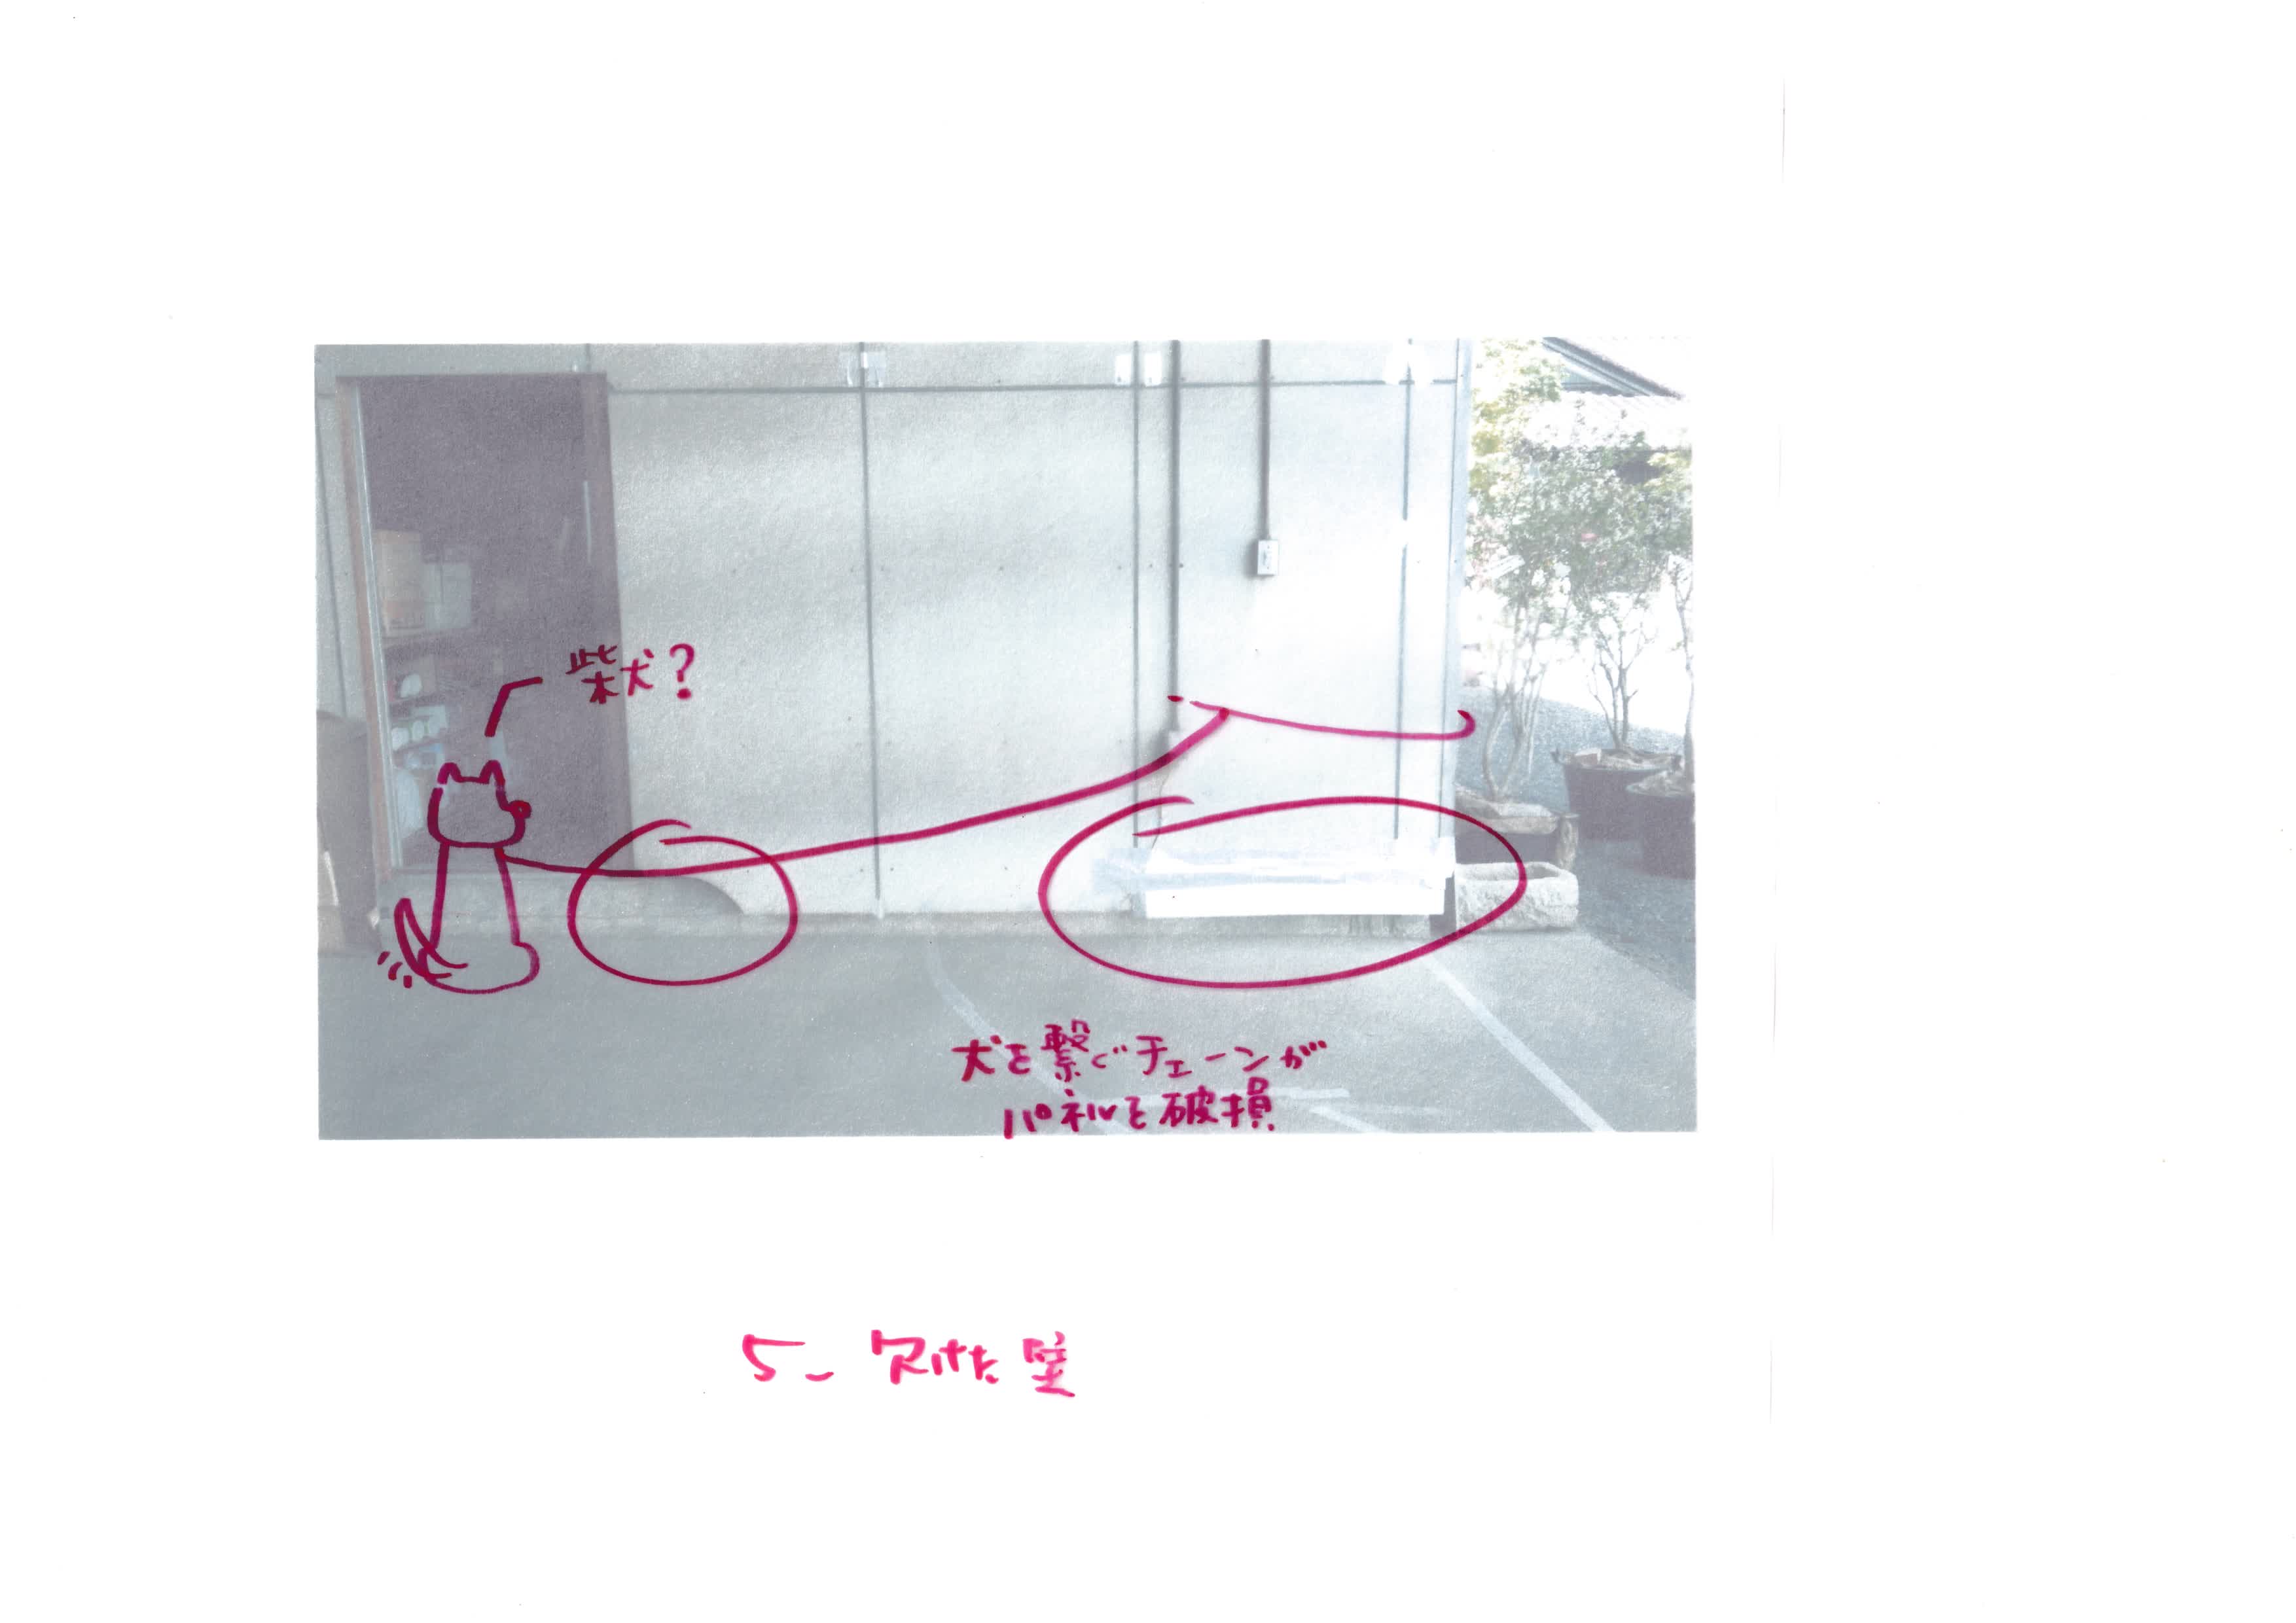 柴犬?
犬を繋ぐチェーンが
パネルを破損
5_ 欠けた壁